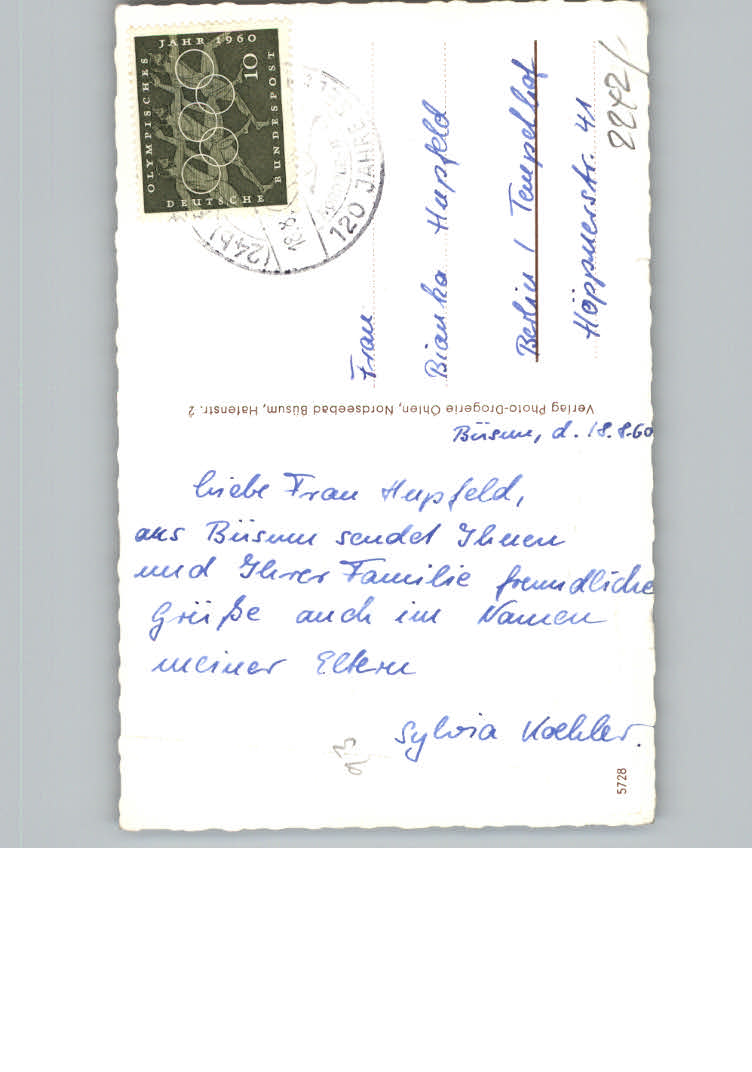 OLYMPISCHES
JAHR 1960
10
DEUTSCHE
BUNDESPOST
(24b)
18.8.
120 JAHRE
Frau
Bianka Hupfeld
Berlin / Tempelhof
Höppnerstr. 41
2242/-
Verlag Photo-Drogerie Ohlen, Nordseebad Büsum, Hafenstr. 2
Büsum, d. 18.8.60
Liebe Frau Hupfeld,
aus Büsum sendet Ihnen
und Ihrer Familie freundliche
Grüße auch im Namen
meiner Eltern
Sylvia Koehler.
5728